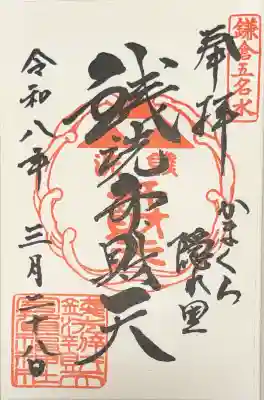 鎌倉五名水
奉拝
かまくら
隠れ里
銭洗弁財天
令和八年 三月二十八日